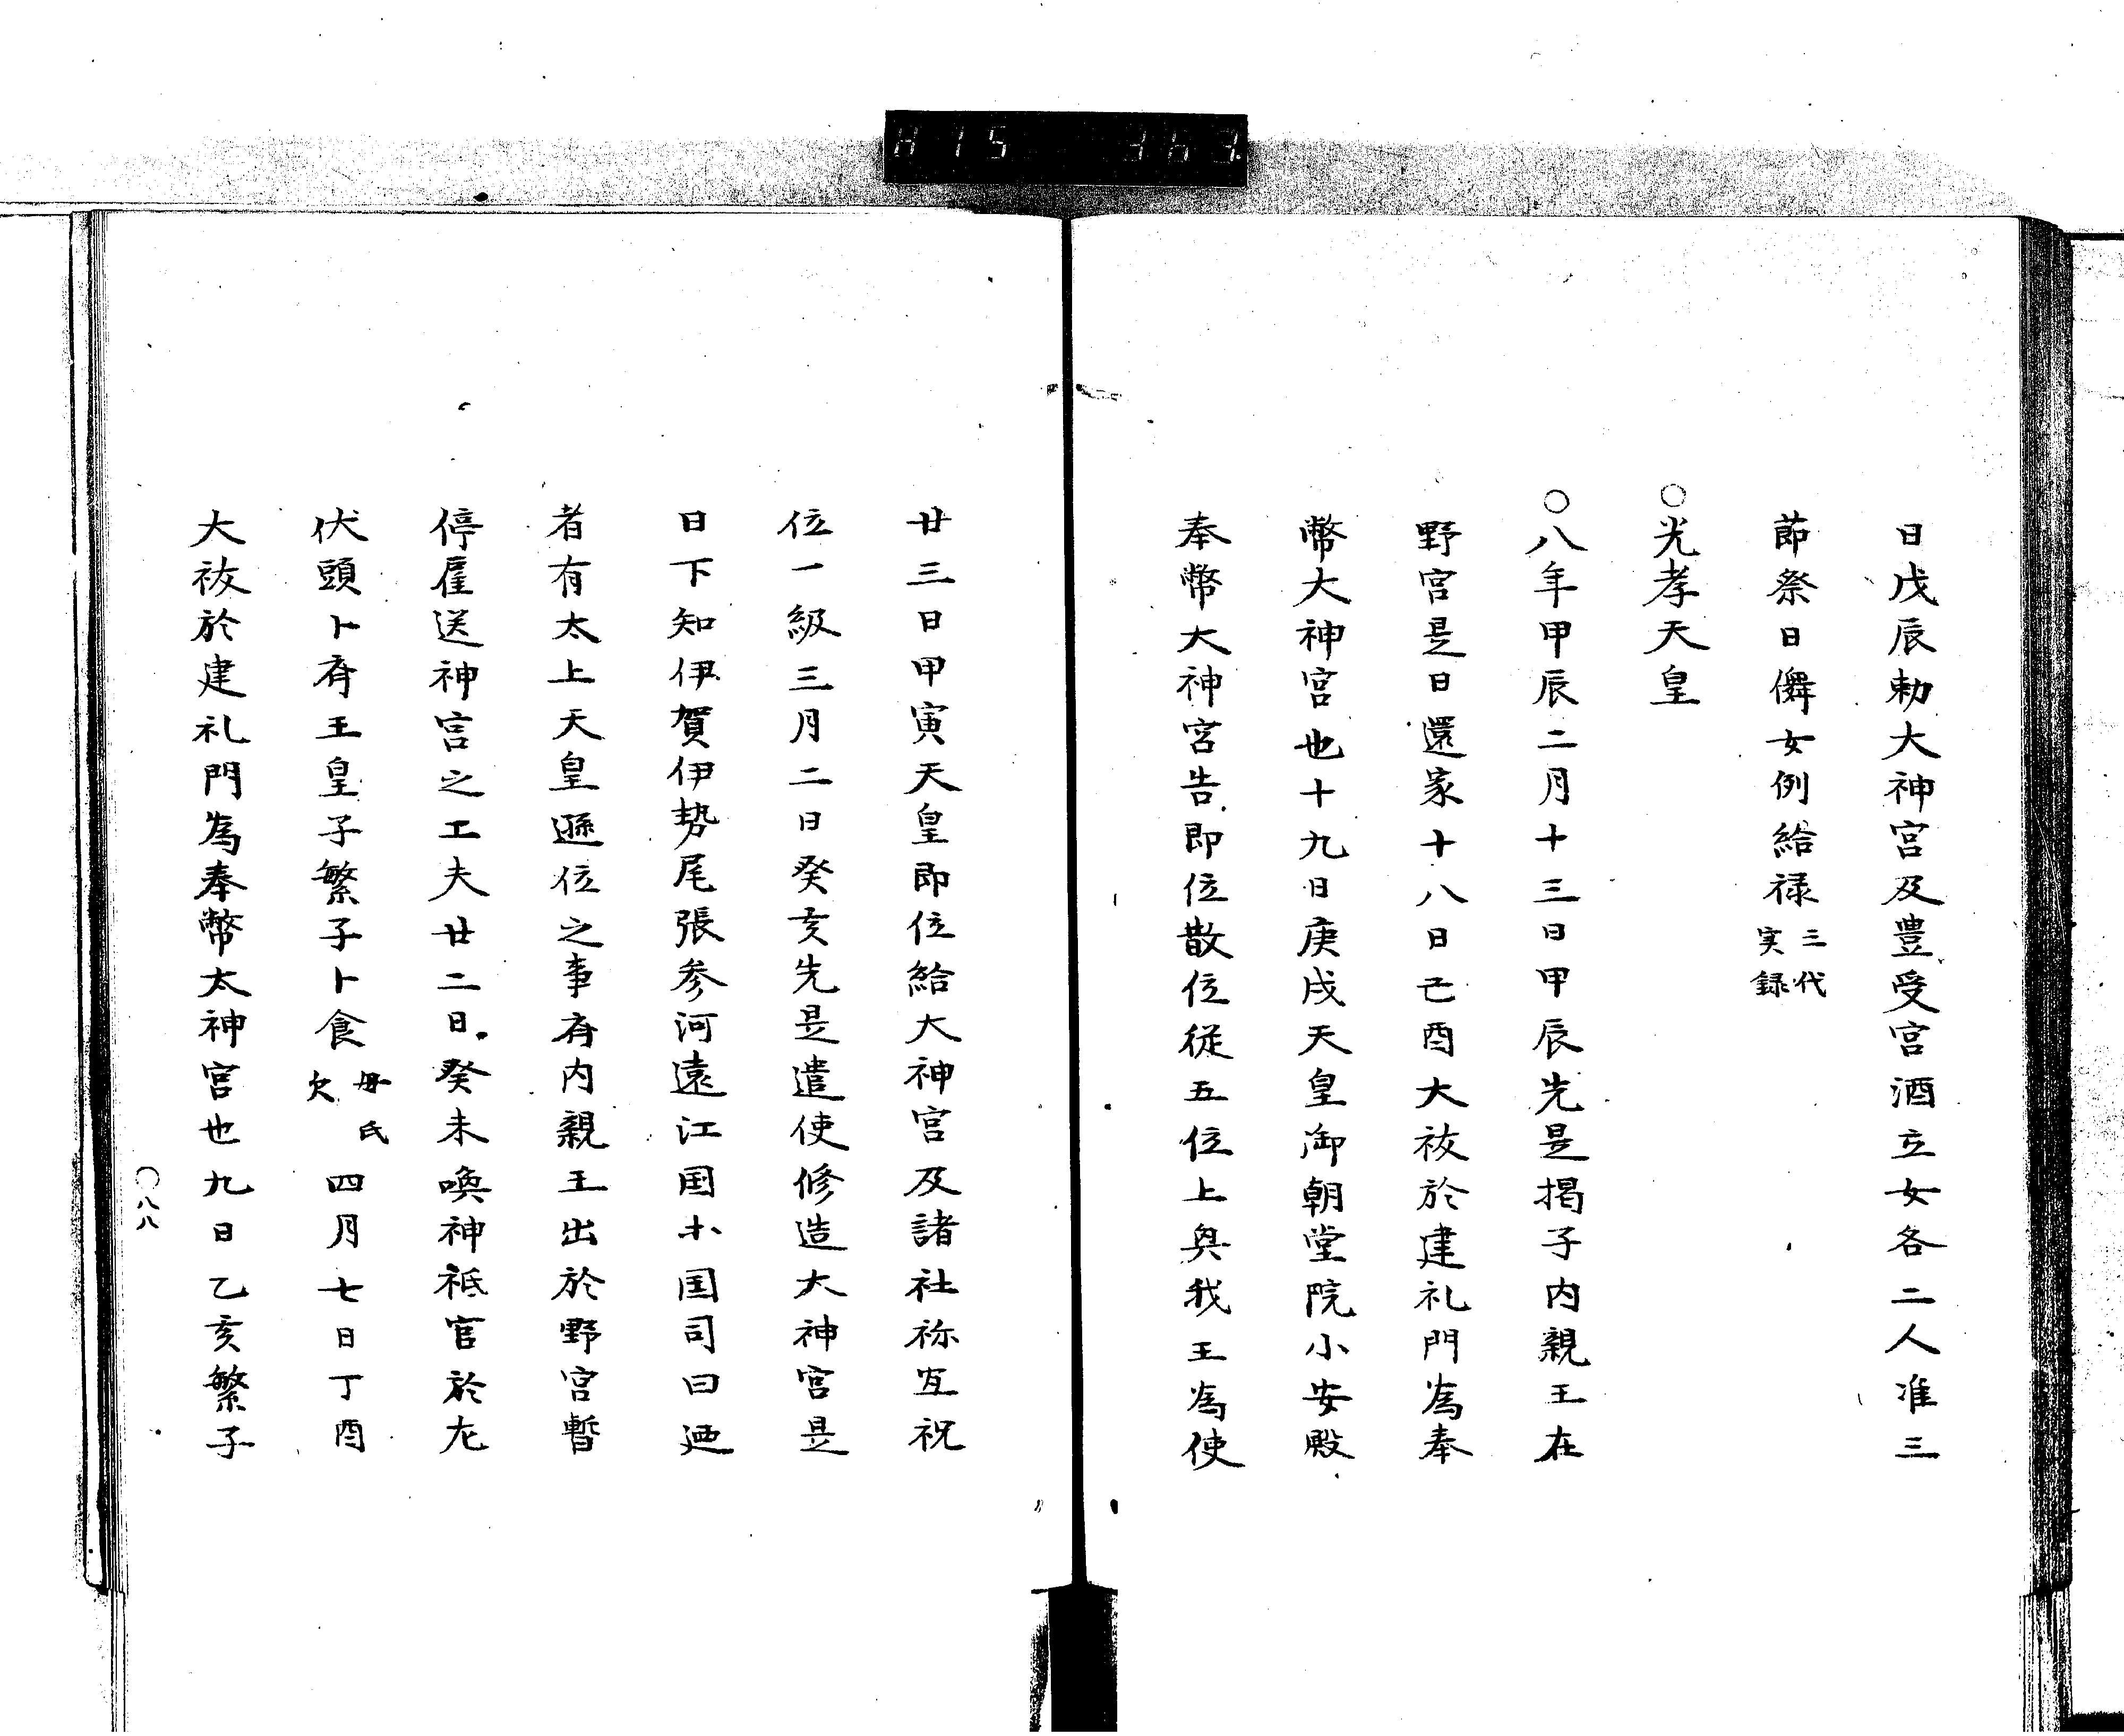 日戊辰勅大神宮及豊受宮酒立女各二人准三
節祭日儛女例給禄三代実録
○光孝天皇
○八年甲辰二月十三日甲辰先是掲子内親王在
野宮是日還家十八日己酉大祓於建礼門為奉
幣大神宮也十九日庚戌天皇御朝堂院小安殿
奉幣大神宮告即位散位従五位上興我王為使
廿三日甲寅天皇即位給大神宮及諸社祢宜祝
位一級三月二日癸亥先是遣使修造大神宮是
日下知伊賀伊勢尾張参河遠江国木国司曰廼
者有太上天皇遜位之事斎内親王出於野宮暫
停雇送神宮之工夫廿二日癸未喚神祇官於左
伏頭卜斎王皇子繁子卜食母氏欠四月七日丁酉
大祓於建礼門為奉幣太神宮也九日乙亥繁子
〇八八